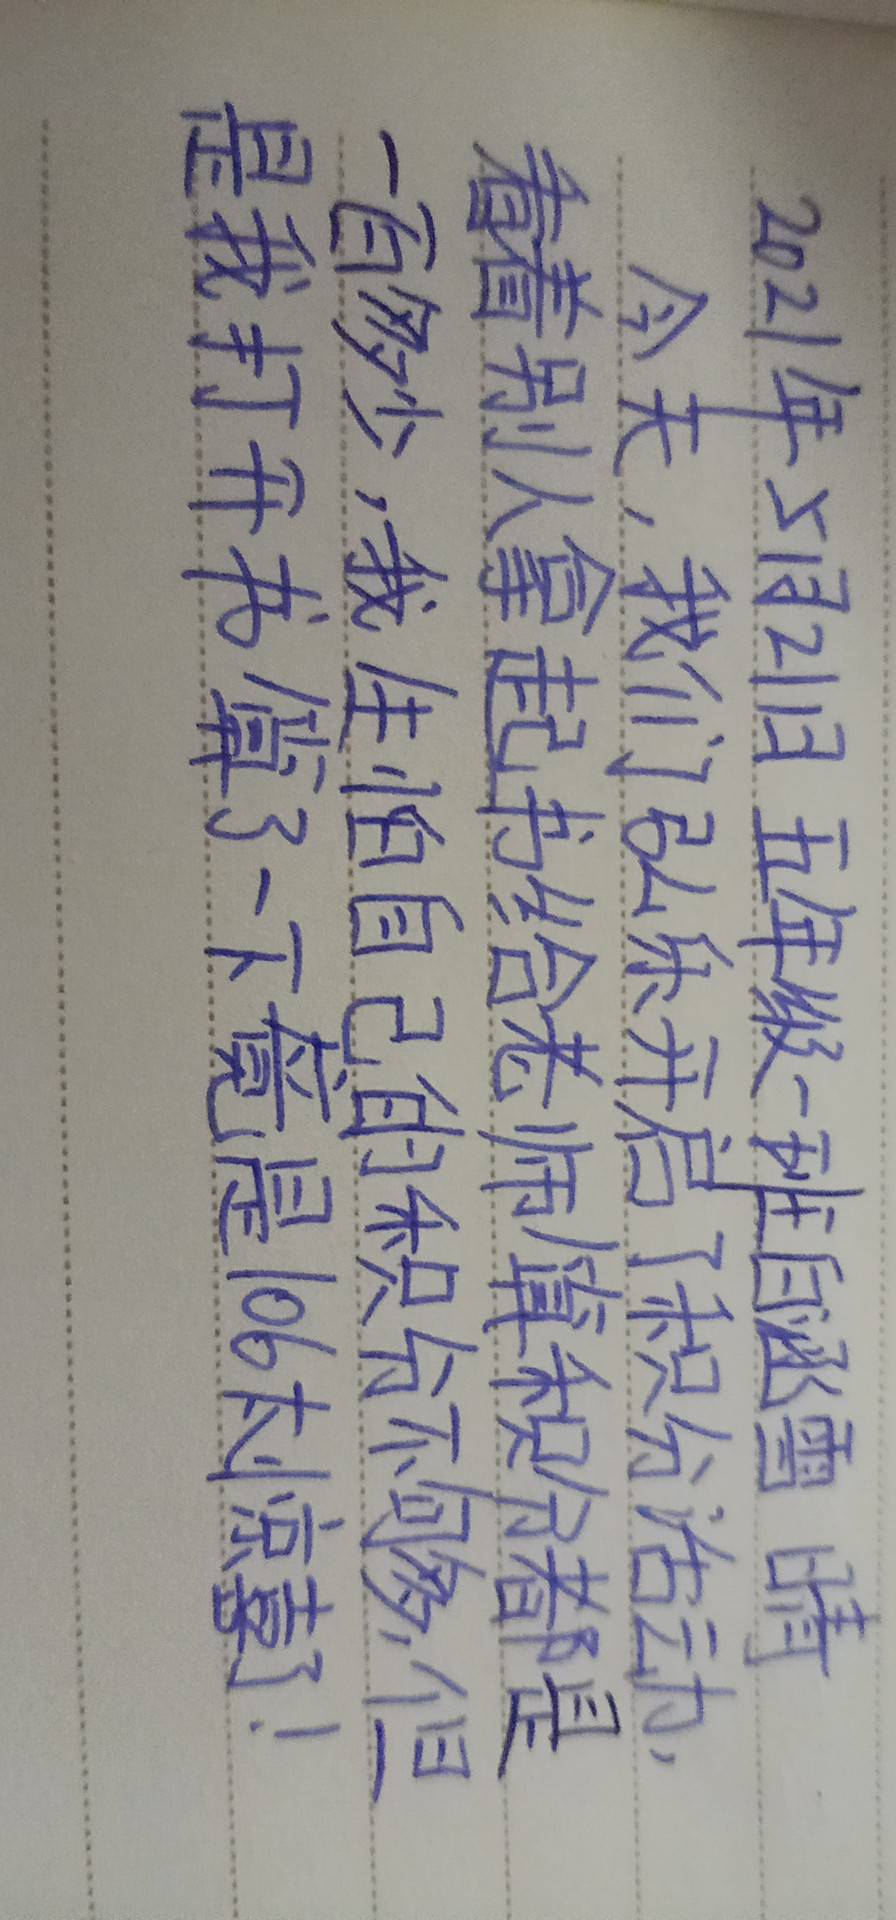 2021年5月21日 五年级一班白涵雪 晴
今天,我们弘乐开启了积分活动,
看着别人拿起书给老师算积分都是
一百多少,我生怕自己的积分不够多,但
是我打开书算了一下竟是106太凉喜了!